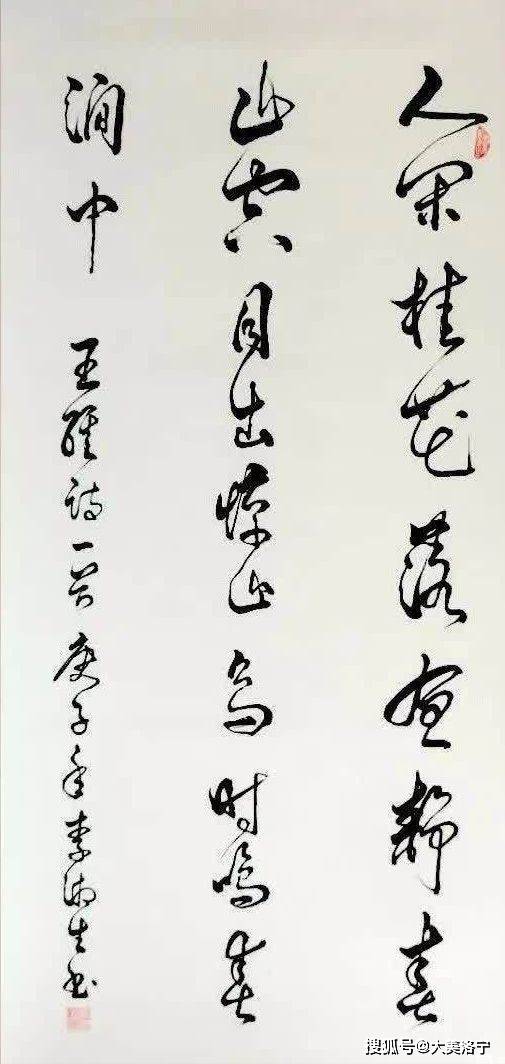 人闲桂花落夜静春
山空月出惊山鸟时鸣春
涧中 王维诗一首 庚子年李淑生书
搜狐号@大美洛宁